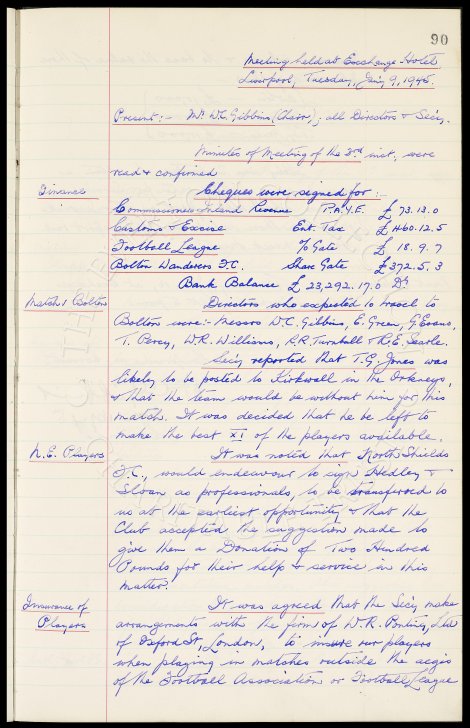 90
Meeting held at Exchange Hotel,
Liverpool, Tuesday, Jan'y 9, 1945.
Present:- Mr W.C. Gibbins (Chair); all Directors & Sec'y.
Minutes of Meeting of the 3rd inst. were
read & confirmed
Finance Cheques were signed for:-
Commissioners Inland Revenue P.A.Y.E. £ 73.13.0
Customs & Excise Ent. Tax £ 460.12.5
Football League % Gate £ 18.9.7
Bolton Wanderers F.C. Share Gate £ 372.5.3
Bank Balance £ 23,292.17.0 Dr
Match v Bolton Directors who expected to travel to
Bolton were:- Messrs W.C. Gibbins, E. Green, G. Evans,
T. Percy, W.R. Williams, R.R. Turnbull & R.E. Searle.
Sec'y reported that T.G. Jones was
likely to be posted to Kirkwall in the Orkneys,
& that the team would be without him for this
match. It was decided that he be left to
make the best XI of the players available.
N.E. Players It was noted that North Shields
F.C., would endeavour to sign Hedley &
Sloan as professionals, to be transferred to
us at the earliest opportunity & that the
Club accepted the suggestion made to
give them a Donation of Two Hundred
Pounds for their help & service in this
matter.
Insurance of It was agreed that the Sec'y make
Players arrangements with the firm of W.R. Ponting, Ltd
of Oxford St, London, to insure our players
when playing in matches outside the aegis
of the Football Association or Football League